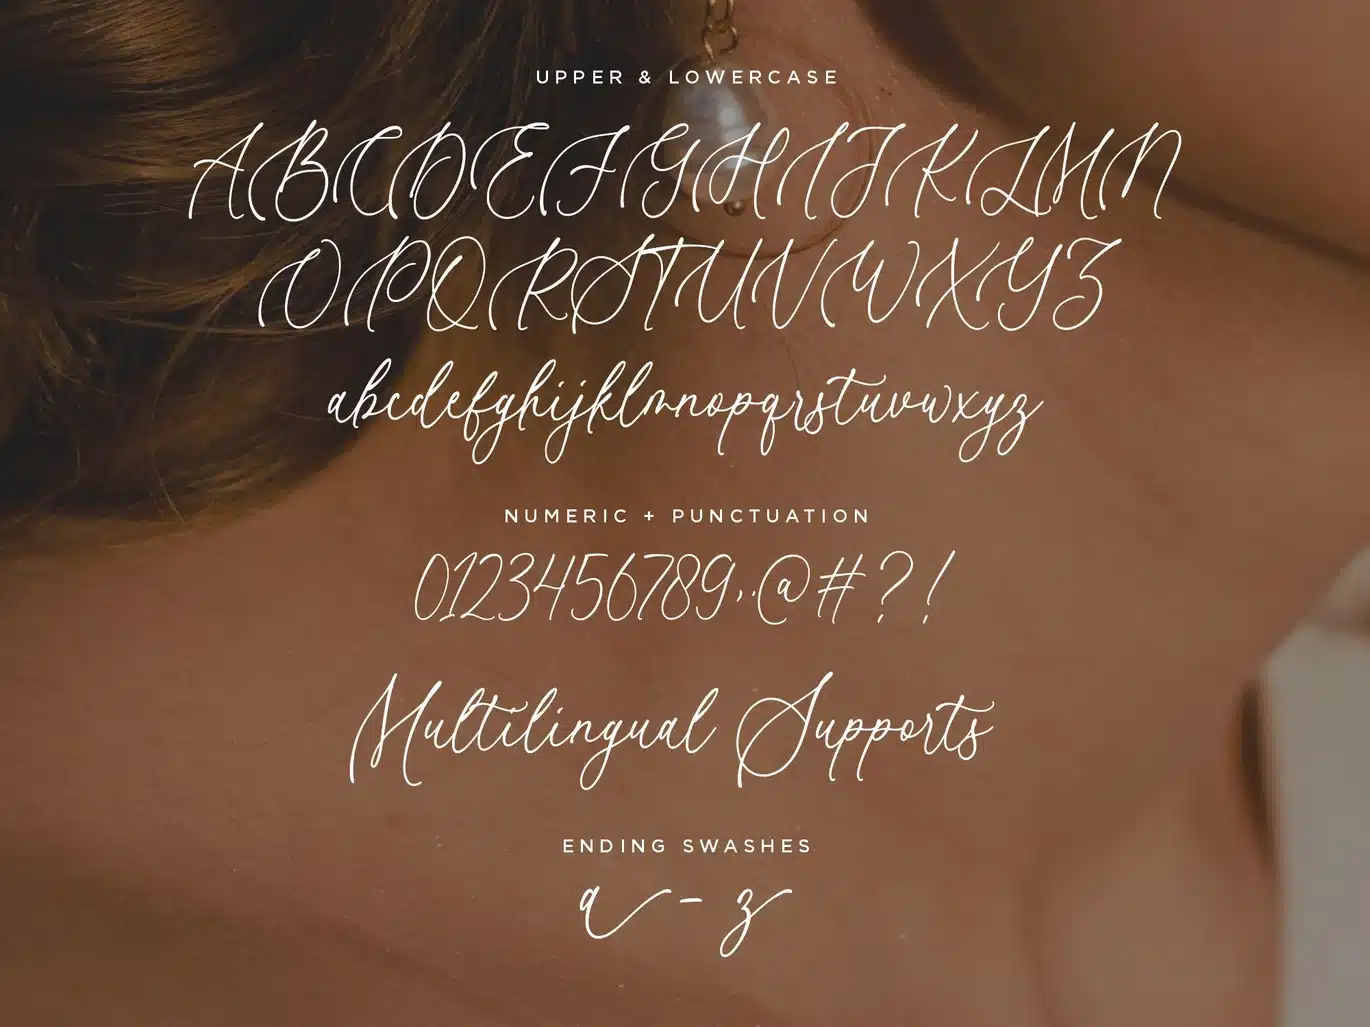 UPPER & LOWERCASE
ABCDEFGHIJKLMN
OPQRSTUVWXYZ
abcdefghijklmnopqrstuvwxyz
NUMERIC + PUNCTUATION
0123456789,.@#?!
Multilingual Supports
ENDING SWASHES
a - z